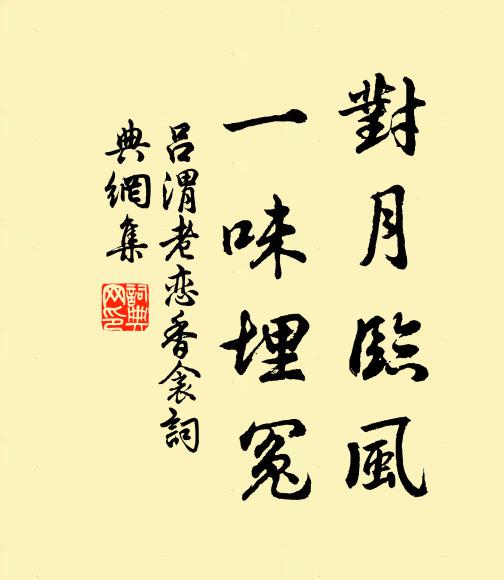 對月臨風
一味埋冤
吕渭老恋香衾詞
典網集
詞典
网印